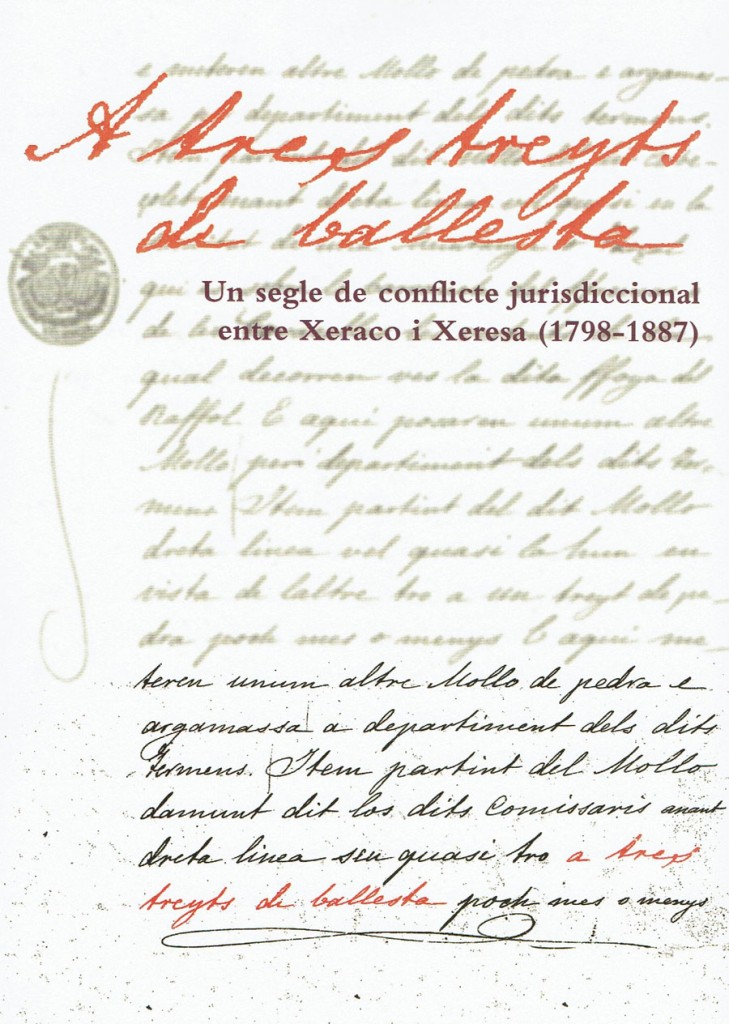 e meteren altre Mollo de pedra e argamas-
sa a departiment dels dits termens.
A tres treyts
de ballesta
Un segle de conflicte jurisdiccional
entre Xeraco i Xeresa (1798-1887)
qual decorren ves la dita ffoya del
Raffol. E aqui posaren unum altre
Mollo per departiment dels dits ter-
mens Item partint del dit Mollo
dreta linea vel quasi la hun en
vista de laltre tro a un treyt de pe-
dra poch mes o menys E aqui me-
teren unum altre Mollo de pedra e
argamassa a departiment dels dits
termens. Item partint del Mollo
damunt dit los dits Comissaris anant
dreta linea seu quasi tro a tres
treyts de ballesta poch mes o menys